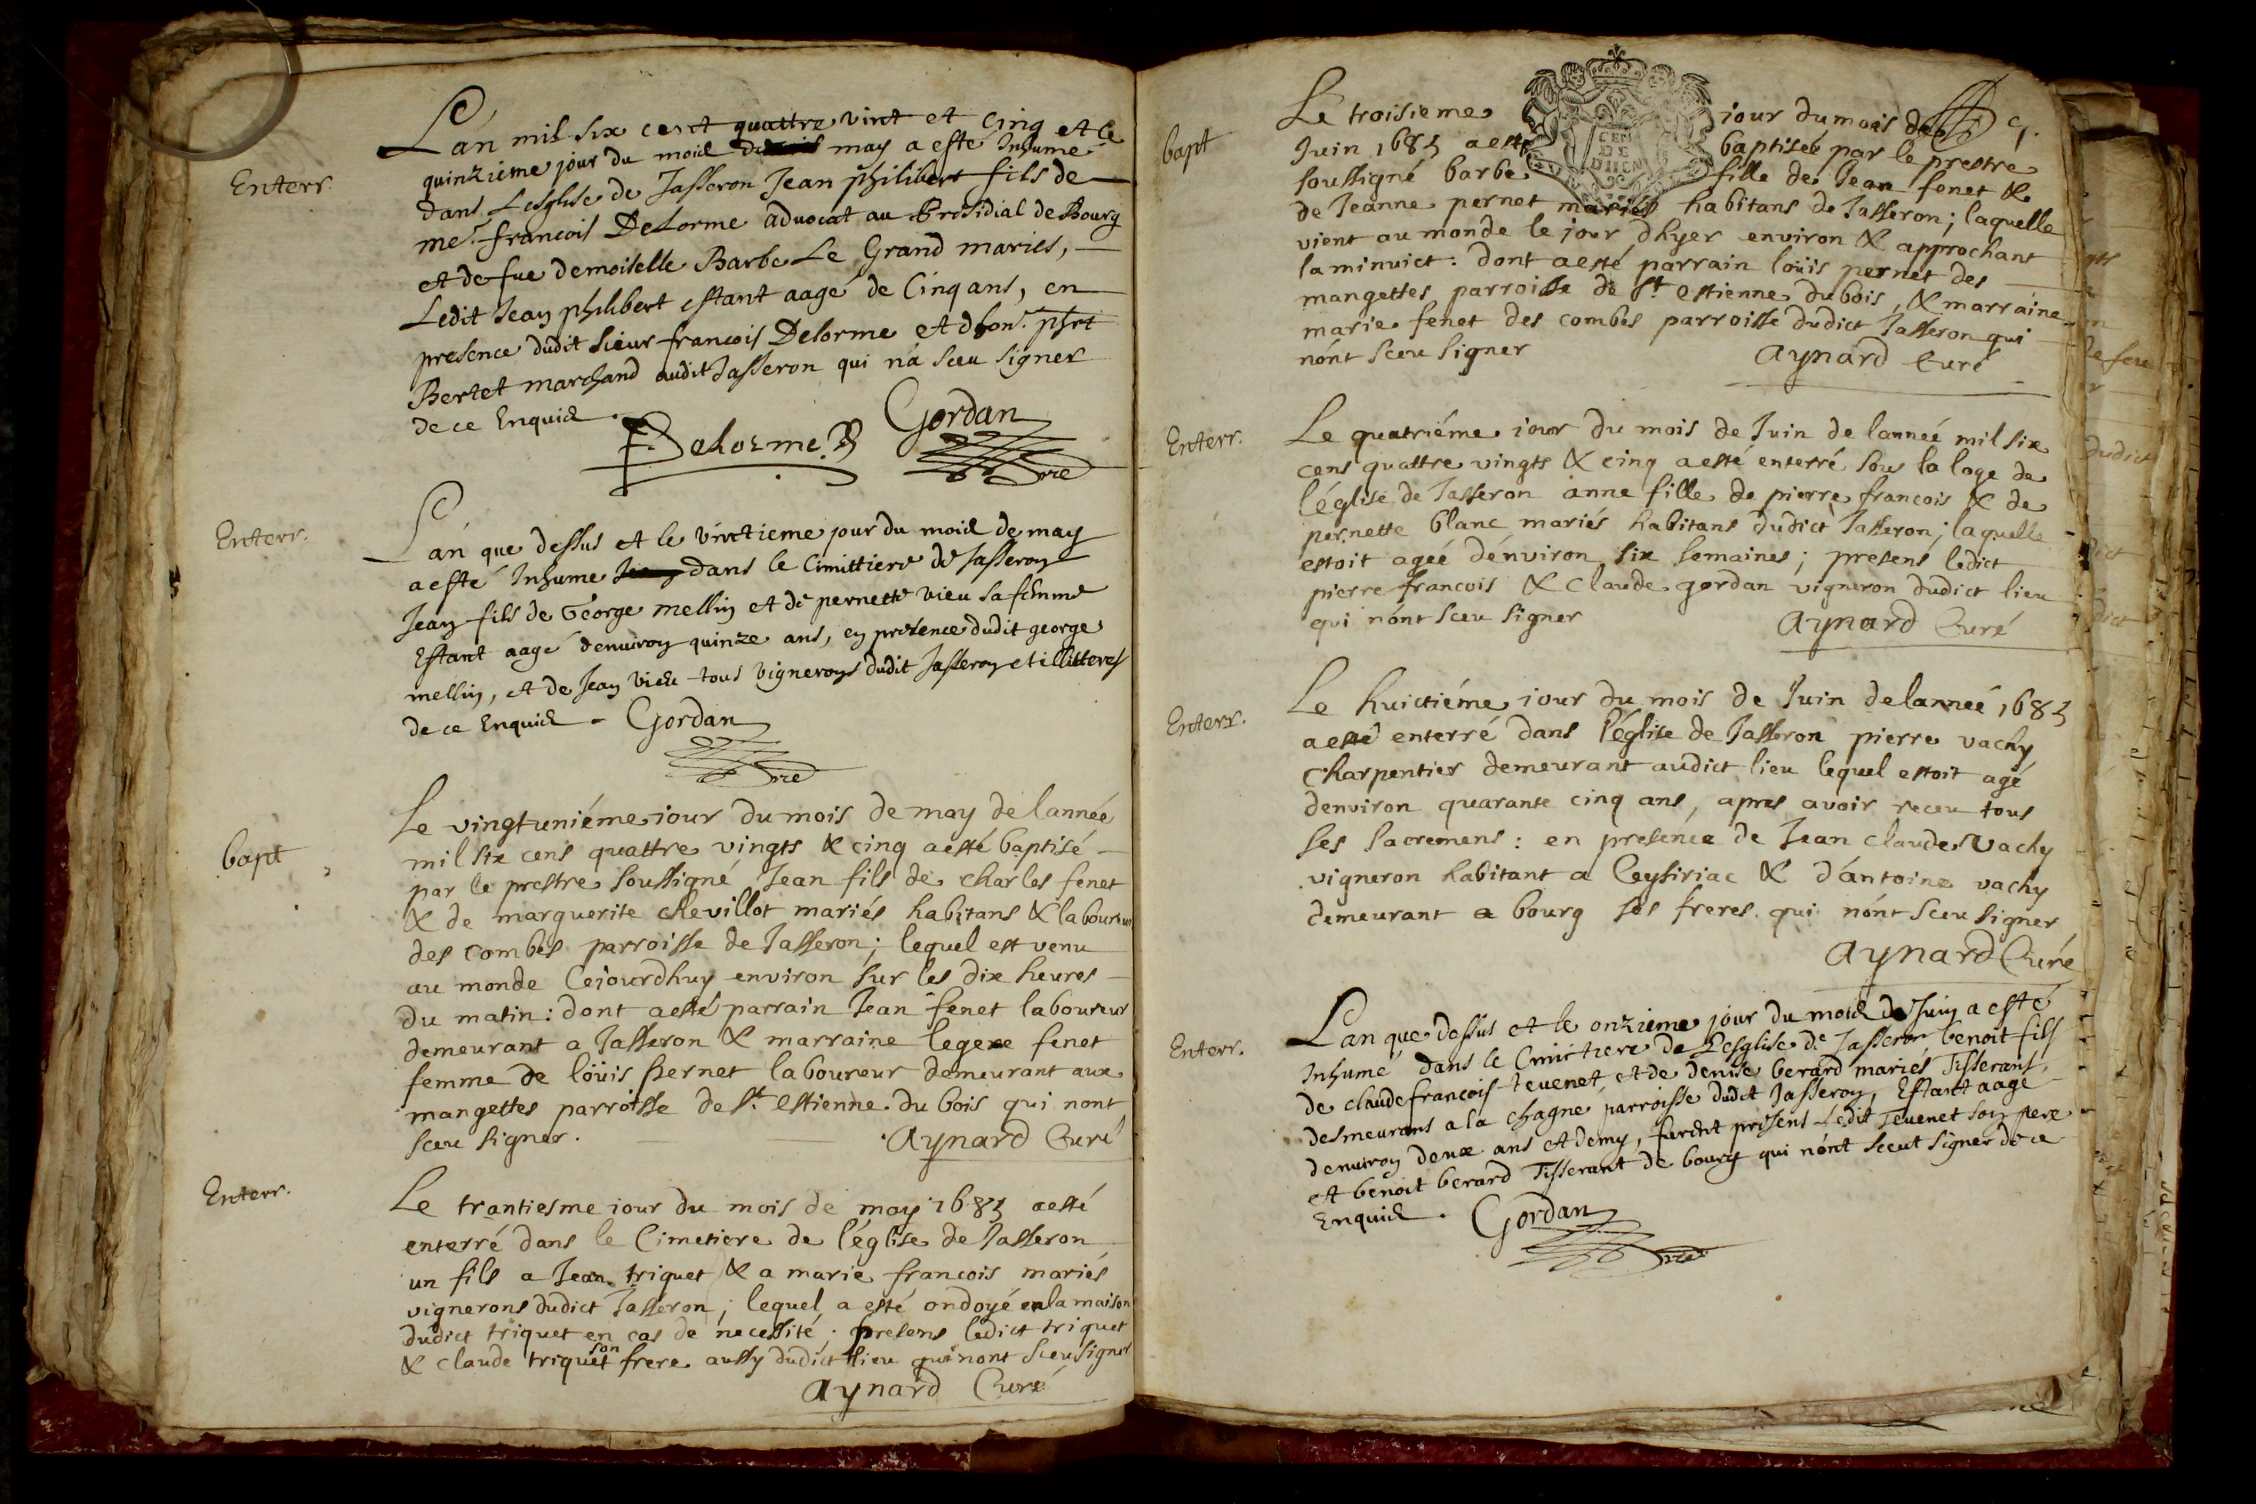 Enterr.
Lan mil six cent quattre vint et Cinq et le
quinzieme jour du mois de may a este Inhume
dans Lesglise de Jasseron Jean philibert fils de
me. francois DeLorme advocat au Presidial de Bourg
et de fue demoiselle Barbe Le Grand mariés,
Ledit Jean philibert estant aagé de Cinq ans, en
presence dudit sieur francois Delorme et dhon.
Bertet marchand audit Jasseron qui na sceu signer
de ce Enquis.
Delorme Gordan
Enterr.
Lan que dessus et le vinctieme jour du mois de may
a esté Inhume dans le Cimittiere de Jasseron
Jean fils de George mellin et de pernette vieu sa femme
Estant aagé denviron quinze ans, en presence dudit george
mellin, et de Jean vieu tous vignerons dudit Jasseron et illitteres
de ce Enquis. Gordan
bapt
Le vingtuniéme jour du mois de may de lannée
mil six cens quattre vingts & cinq a esté baptisé
par le prestre soussigné Jean fils de charles fenet
& de marguerite chevillot mariés habitans & laboureur
des combes parroisse de Jasseron; lequel est venu
au monde Cejourdhuy environ sur les dix heures
du matin: dont a esté parrain Jean fenet laboureur
demeurant a Jasseron & marraine legere fenet
femme de loüis pernet laboureur demeurant aux
mangettes parroisse de st. estienne du bois qui nont
sceu signer. Aynard Curé
Enterr.
Le trantiesme jour du mois de may 1685 a esté
enterré dans le Cimetiere de l'église de Jasseron
un fils a Jean triquet & a marie francois mariés
vignerons dudict Jasseron; lequel a esté ondoyé en la maison
dudict triquet en cas de necessité; presens ledict triquet
& claude triquet son frere aussy dudict lieu qui nont sceu signer
Aynard Curé
bapt
Le troisieme jour du mois de
Juin 1685 a esté baptisée par le prestre
soussigné barbe fille de Jean fenet &
de Jeanne pernet mariés habitans de Jasseron; laquelle
vient au monde le jour dhyer environ & approchant
la minuict: dont a esté parrain loüis pernet des
mangettes parroisse de st estienne du bois, & marraine
marie fenet des combes parroisse dudict Jasseron qui
nónt sceu signer Aynard Curé
Enterr.
Le quatriéme jour du mois de Juin de lanneé mil six
cens quattre vingts & cinq a esté enterré sous la loge de
l'église de Jasseron anne fille de pierre francois & de
pernette blanc mariés habitans dudict Jasseron; laquelle
estoit ageé dénviron six semaines; presens ledict
pierre francois & claude gordan vigneron dudict lieu
qui nónt sceu signer Aynard Curé
Enterr.
Le huictiéme jour du mois de Juin de lanneé 1685
a esté enterré dans l'église de Jasseron pierre vachy
Charpentier demeurant audict lieu lequel estoit agé
denviron quarante cinq ans, apres avoir receu tous
ses sacremens: en presence de Jean claude Vachy
vigneron habitant a Ceysiriac & d'antoine vachy
demeurant a bourg ses freres qui nónt sceu signer
Aynard Curé
Enterr.
Lan que dessus et le onzieme jour du mois de Juin a esté
Inhumé dans le Cimictiere de Lesglise de Jasseron benoit fils
de claude francois tevenet, et de denise berard mariés Tisserans,
desmeurans a la chagne parroisse dudit Jasseron, Estant aagé
denviron deux ans et demy, furent presens Ledit Tevenet son pere
et benoit berard Tisserant de bourg qui nónt sceut signer de ce
Enquis. Gordan